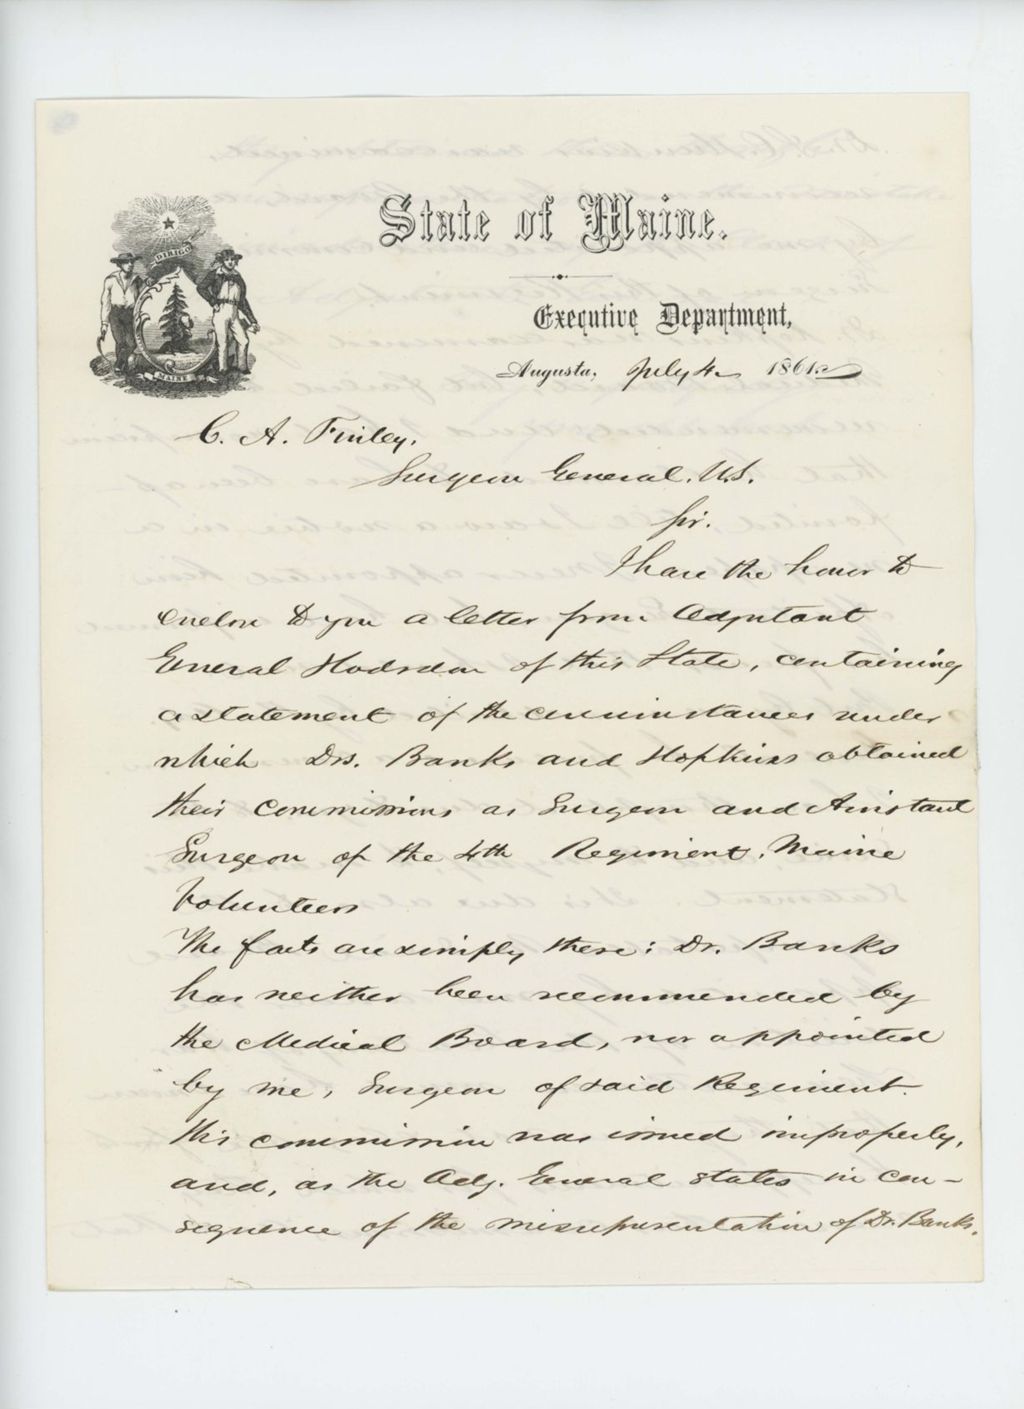 State of Maine.
Executive Department,
Augusta, July 4 1861.
DIRIGO
MAINE
C. A. Finley,
Surgeon General, U.S.
Sir.
I have the honor to
enclose to you a letter from Adjutant
General Hodsdon of this State, containing
a statement of the circumstances under
which Drs. Banks and Hopkins obtained
their commissions as Surgeon and Assistant
Surgeon of the 4th Regiment, Maine
Volunteers
The facts are simply these: Dr. Banks
has neither been recommended by
the Medical Board, nor appointed
by me, Surgeon of said Regiment.
His commission was issued improperly,
and, as the Adj. General states in con-
sequence of the misrepresentation of Dr. Banks.